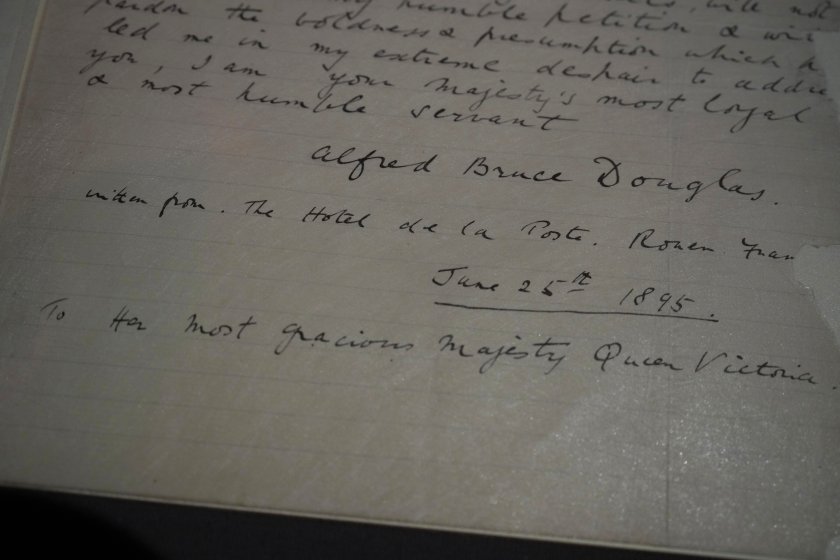 humble petition & will not
pardon the boldness & presumption which h
led me in my extreme despair to addre
you, I am your Majesty's most loyal
& most humble servant
Alfred Bruce Douglas.
written from. The Hotel de la Poste. Rouen Fran
June 25th 1895.
To Her most gracious Majesty Queen Victoria.